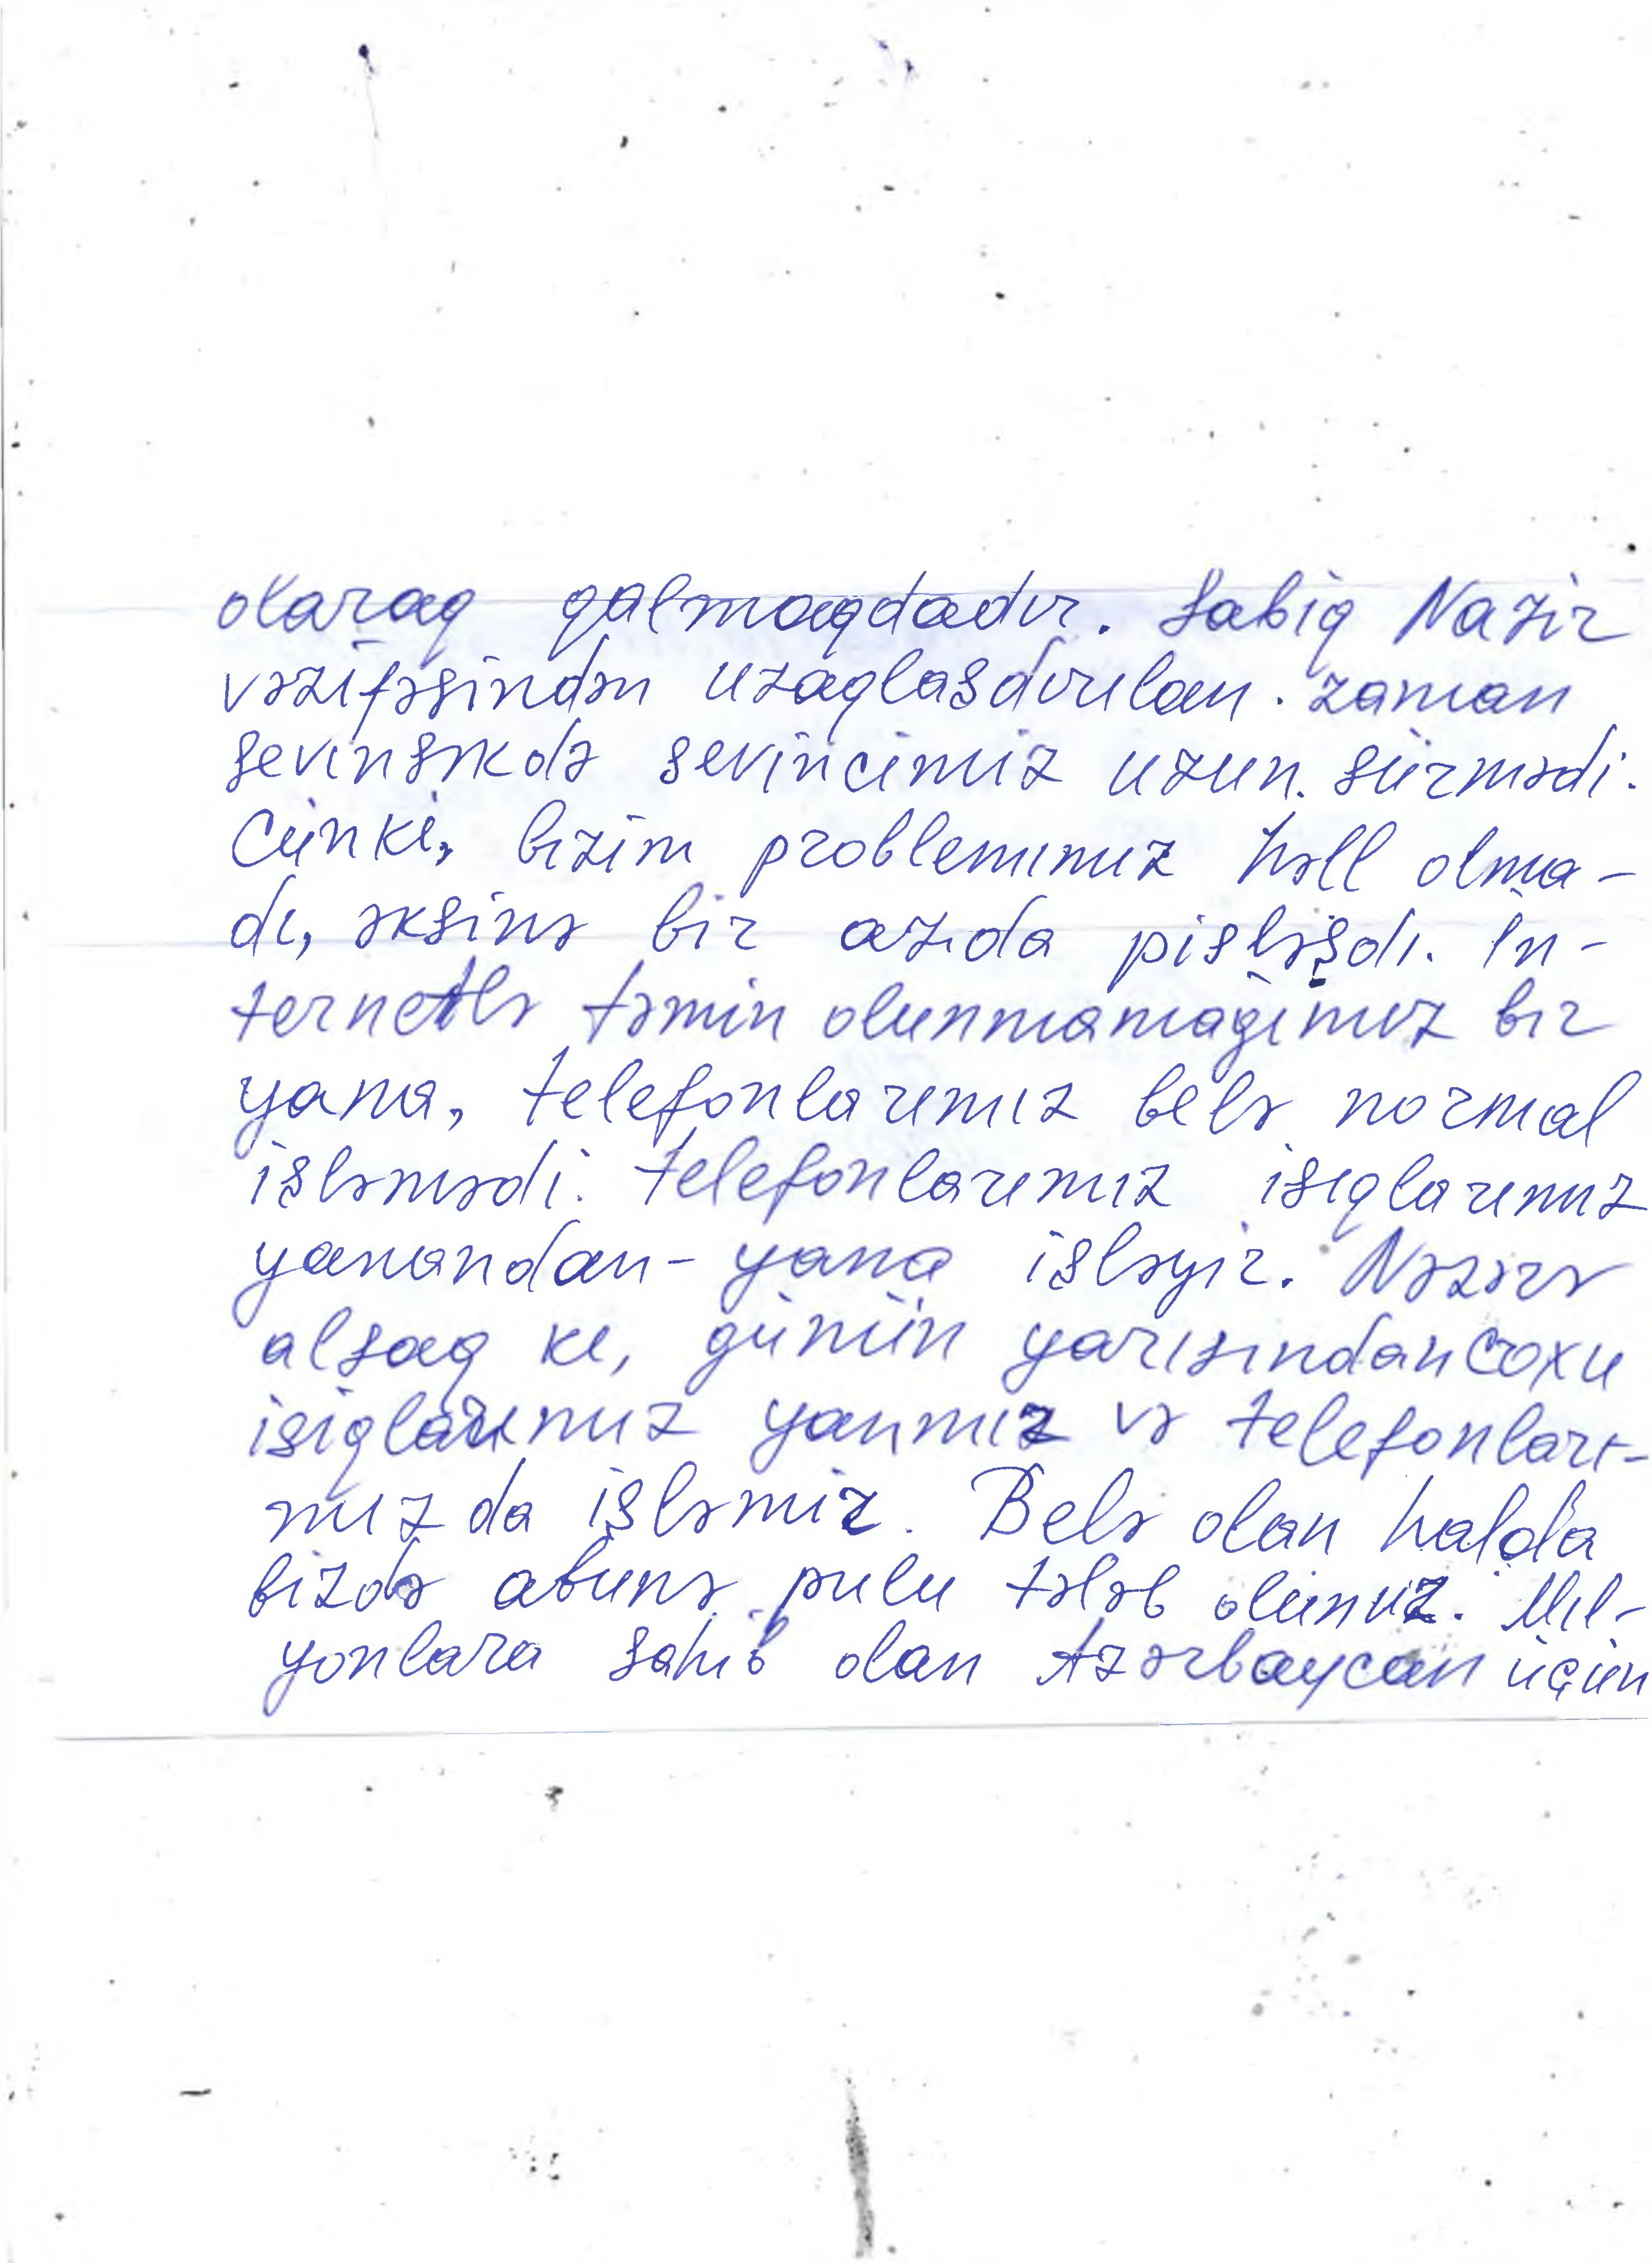 olaraq qalmaqdadır. Sabiq Nazir
vəzifəsindən uzaqlasdırılan. zaman
sevinsəkdə sevincimiz uzun. sürmədi.
Cünki, bizim problemımız həll olma-
dı, əksinə bir azda pisləşdı. İn-
ternetlə təmin olunmamağımız bır
yana, telefonlarımız belə normal
işləmədi. telefonlarımız isıqlarımız
yanandan-yana işləyir. Nəzərə
alsaq kı, günün yarısından coxu
isiqlarımız yanmır və telefonları-
mız da işləmir. Belə olan halda
bizdə abunə pulu tələb olunur. Mıl-
yonlara sahib olan Azərbaycan üçün